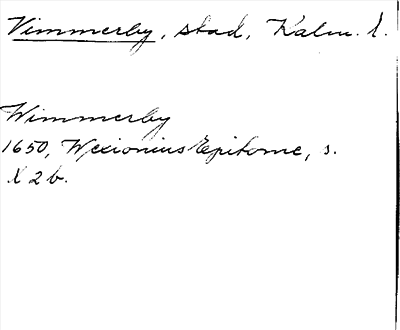 Vimmerby, stad, Kalm. l.
Wimmerby
1650, Wexionius Epitome, s.
l 2 b.